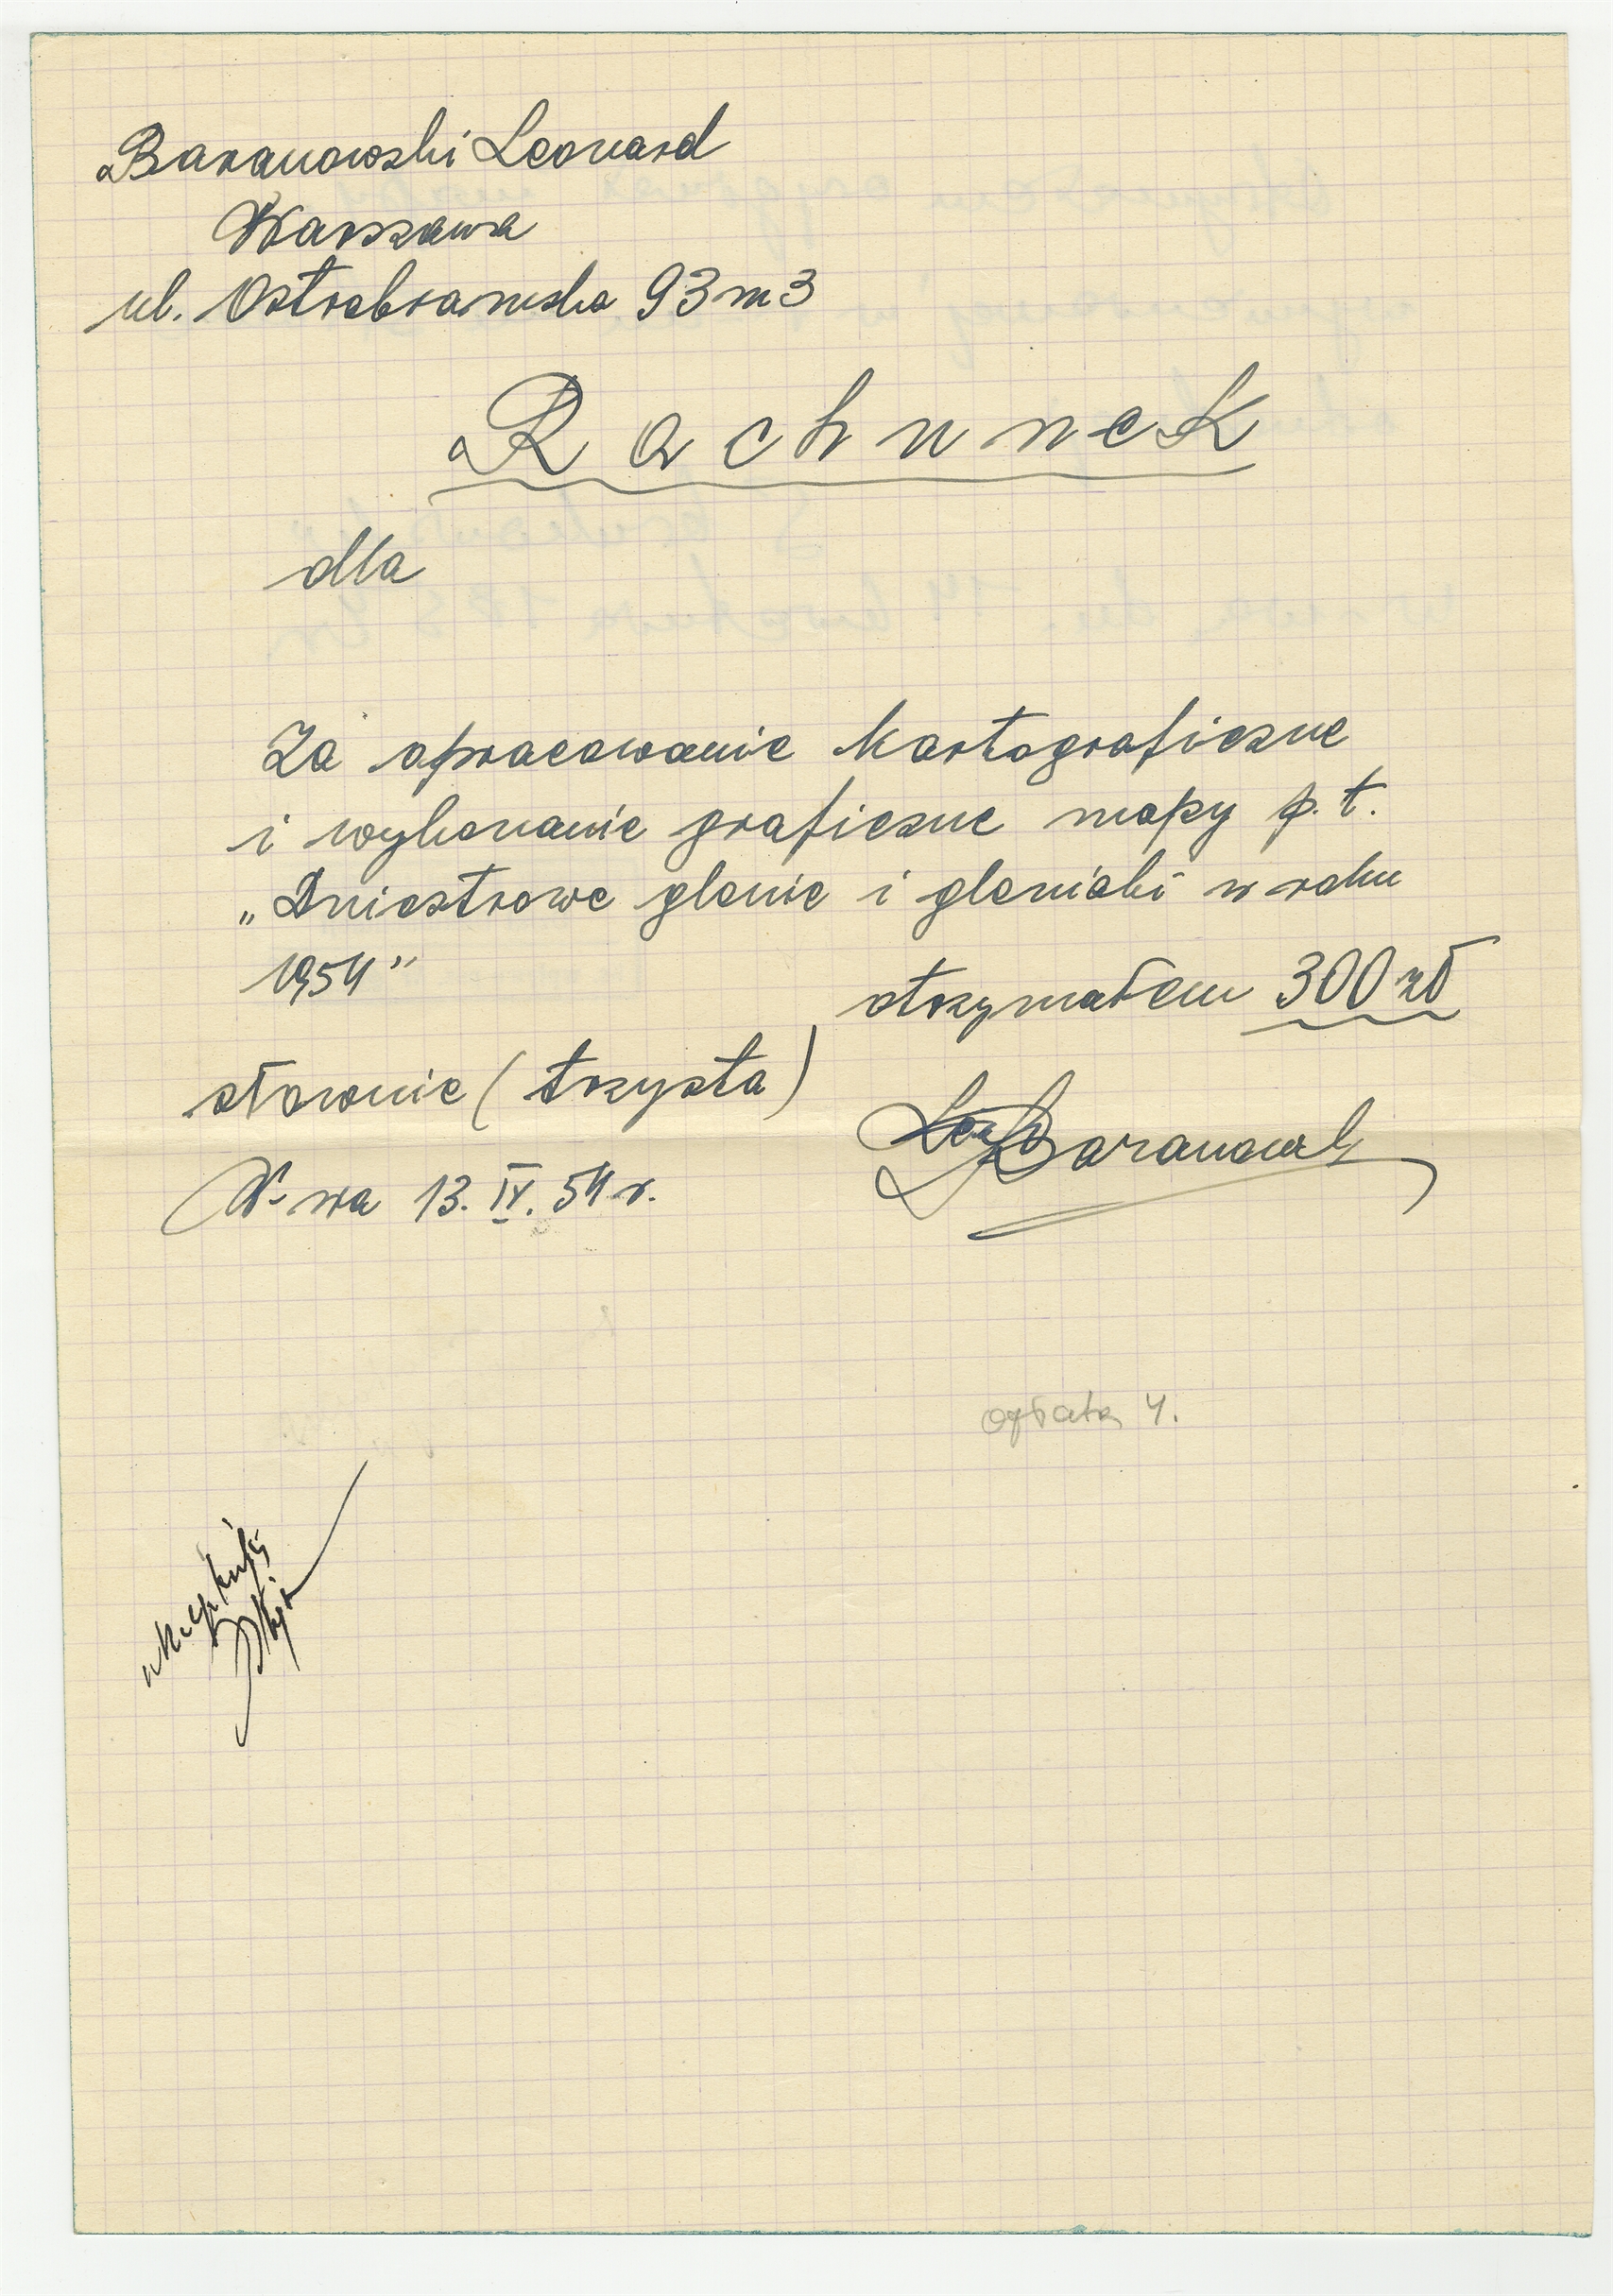 Baranowski Leonard
Warszawa
ul. Ostrobramska 93 m 3
Rachunek
dla
Za opracowanie kartograficzne
i wykonanie graficzne mapy p.t.
„Dniestrowe glenie i gleniaki w roku
1954”
otrzymałem 300 zł
słownie (trzysta)
W-wa 13. IV. 54 r.
opłata 4.